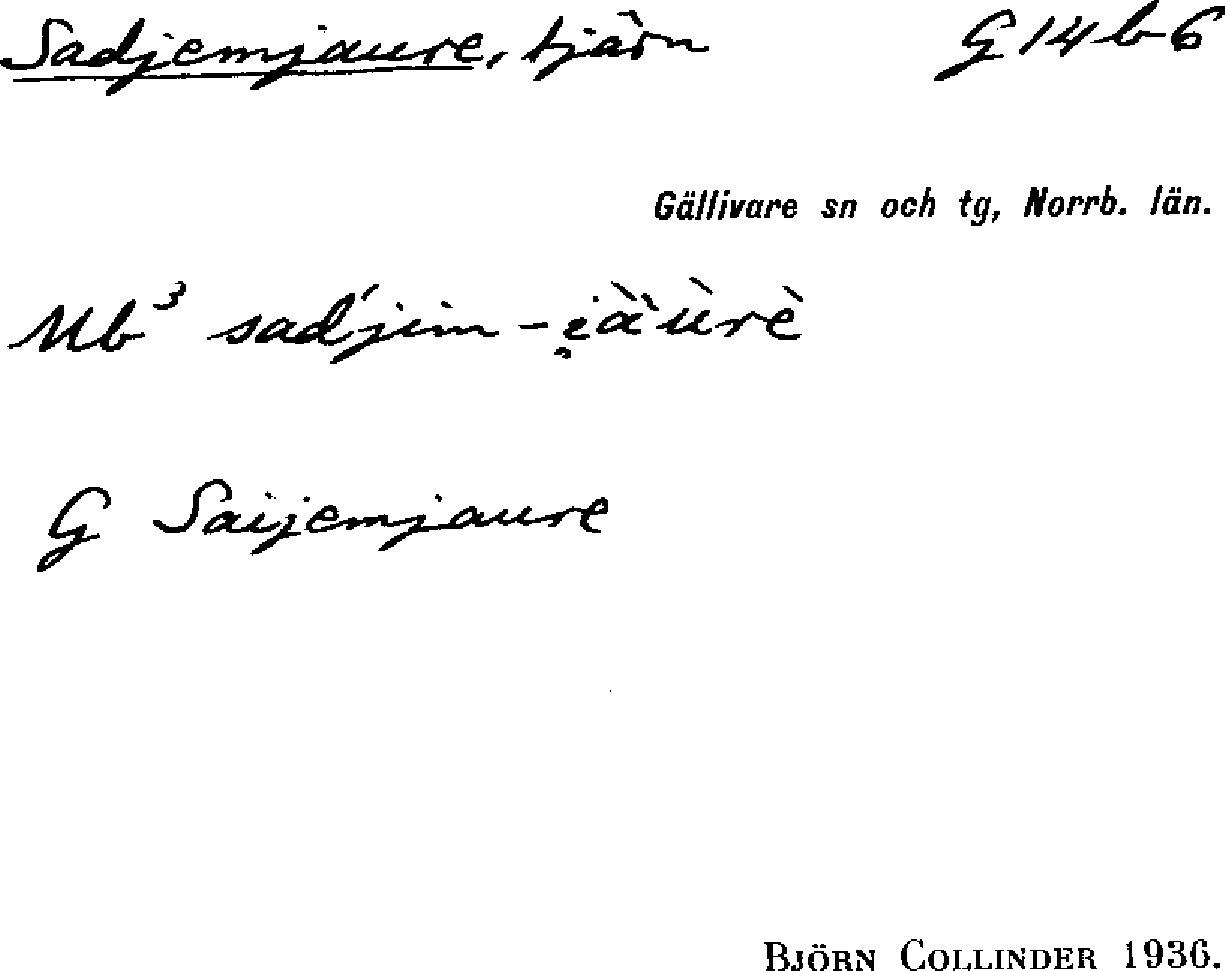 Sadjemjaure, tjärn G 14 b 6
Gällivare sn och tg, Norrb. län.
Nb³ sad́jim-i̯ὰ̈ùrè
G Saijemjaure
BJÖRN COLLINDER 1936.